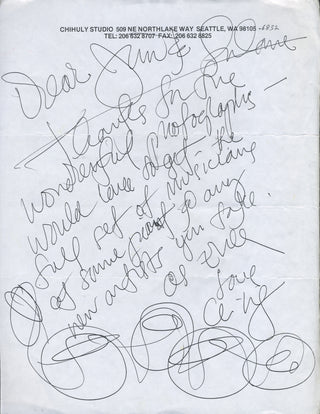 CHIHULY STUDIO 509 NE NORTHLAKE WAY SEATTLE, WA 98105-6832
TEL: 206 632 8707 FAX: 206 632 8825
Dear
Thanks for the
wonderful photographs –
Would love to get the
full set of musicians
at some point to any
new artists you take.
as well –
Love